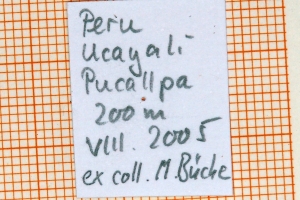 Peru
Ucayali
Pucallpa
200 m
VIII. 2005
ex coll. M. Büche